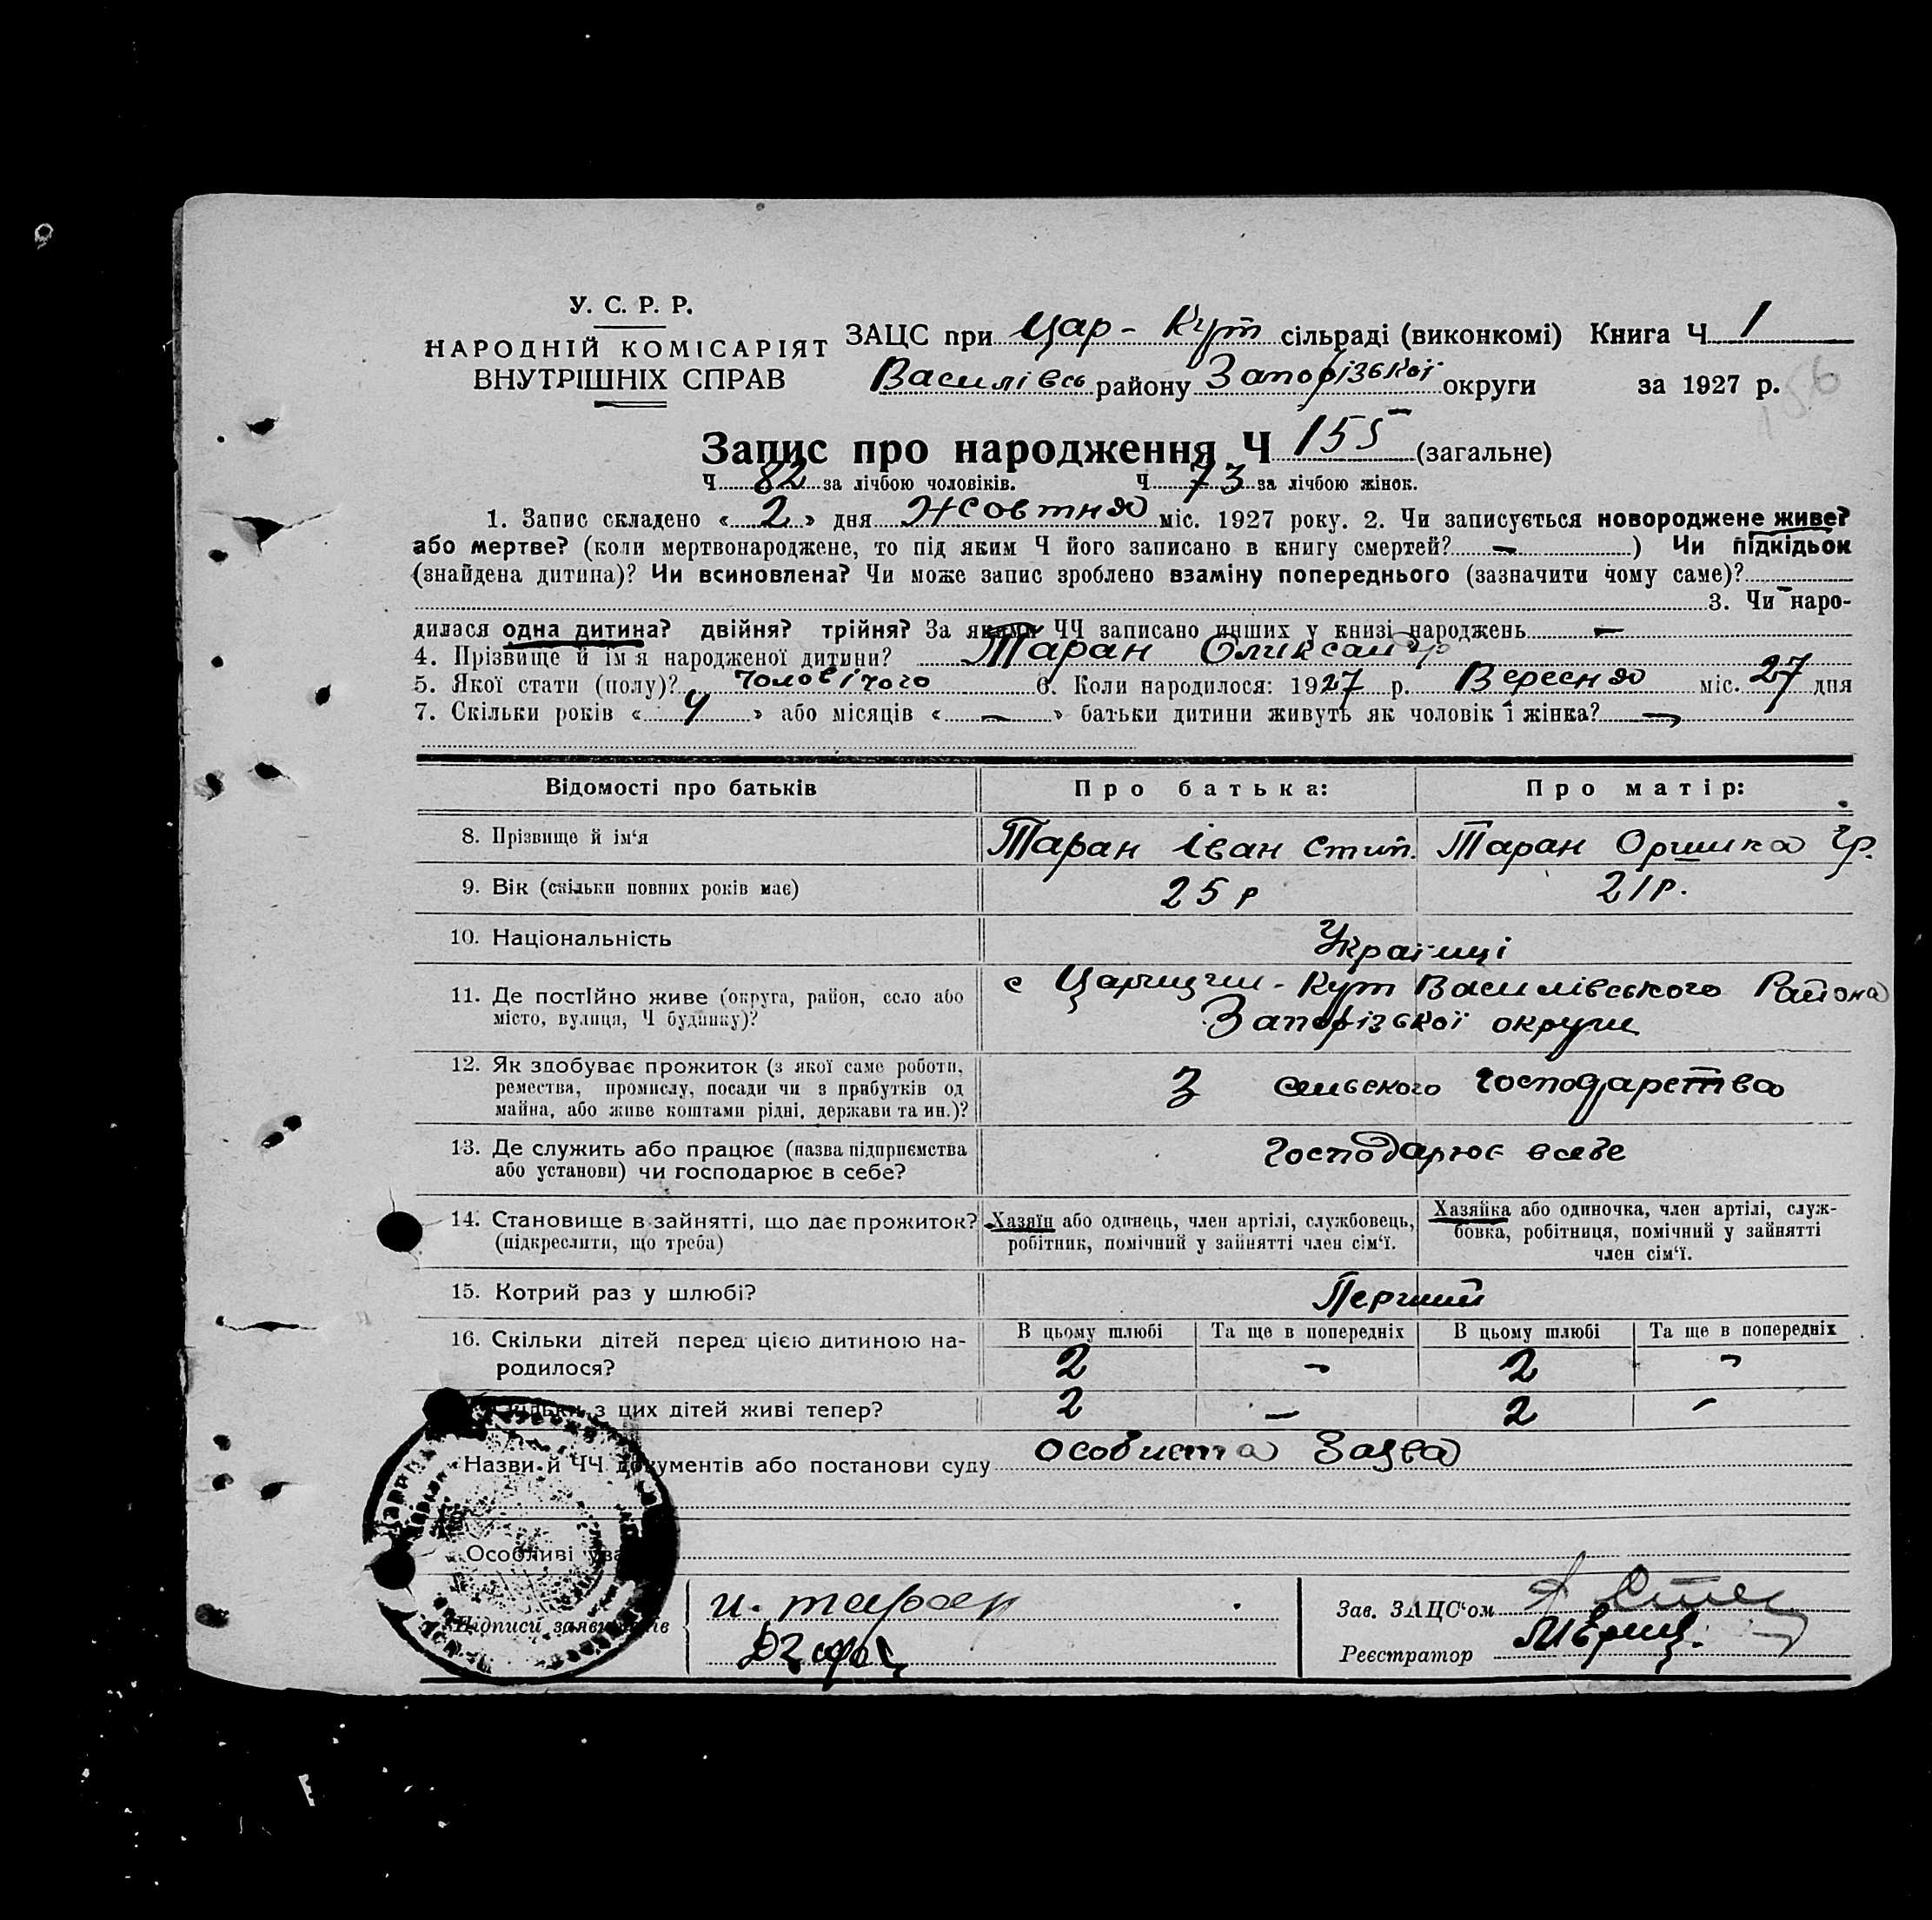 У. С. Р. Р.
НАРОДНІЙ КОМІСАРІЯТ
ВНУТРІШНІХ СПРАВ
ЗАЦС при Цар-Кут сільраді (виконкомі) Книга Ч 1
Василівсь району Запорізької округи за 1927 р.
156
Запис про народження Ч 155 (загальне)
Ч 82 за лічбою чоловіків. Ч 73 за лічбою жінок.
1. Запис складено «2» дня Жовтня міс. 1927 року. 2. Чи записується новороджене живе?
або мертве? (коли мертвонароджене, то під яким Ч його записано в книгу смертей? —) Чи підкідьок
(знайдена дитина)? Чи всиновлена? Чи може запис зроблено взаміну попереднього (зазначити чому саме)?
— 3. Чи наро-
дилася одна дитина? двійня? трійня? За якими ЧЧ записано инших у книзі народжень —
4. Прізвище й ім'я народженої дитини? Таран Олександр
5. Якої стати (полу)? чоловічого 6. Коли народилося: 1927 р. Вересня міс. 27 дня
7. Скільки років «4» або місяців «—» батьки дитини живуть як чоловік і жінка? —
Відомості про батьків Про батька: Про матір:
8. Прізвище й ім'я Таран Іван Стип. Таран Оришка Гр.
9. Вік (скільки повних років має) 25 р 21 р.
10. Національність Українці
11. Де постІйно живе (округа, район, село або
місто, вулиця, Ч будинку)?
с Царицин-Кут Василівського Района
Запорізької округи
12. Як здобуває прожиток (з якої саме роботи,
ремества, промислу, посади чи з прибутків од
майна, або живе коштами рідні, держави та ин.)?
З сельского господарства
13. Де служить або працює (назва підприємства
або установи) чи господарює в себе?
господарює всебе
14. Становище в зайнятті, що дає прожиток?
(підкреслити, що треба)
Хазяїн або одинець, член артілі, службовець,
робітник, помічний у зайнятті член сім'ї.
Хазяйка або одиночка, член артілі, служ-
бовка, робітниця, помічний у зайнятті
член сім'ї.
15. Котрий раз у шлюбі? Перший
16. Скільки дітей перед цією дитиною на-
родилося?
В цьому шлюбі Та ще в попередніх В цьому шлюбі Та ще в попередніх
2 — 2 —
Скільки з цих дітей живі тепер? 2 — 2 —
Назви й ЧЧ документів або постанови суду особиста Заява
Особливі ува
Підписи заявників и. таран
Зав. ЗАЦС'ом
Реєстратор